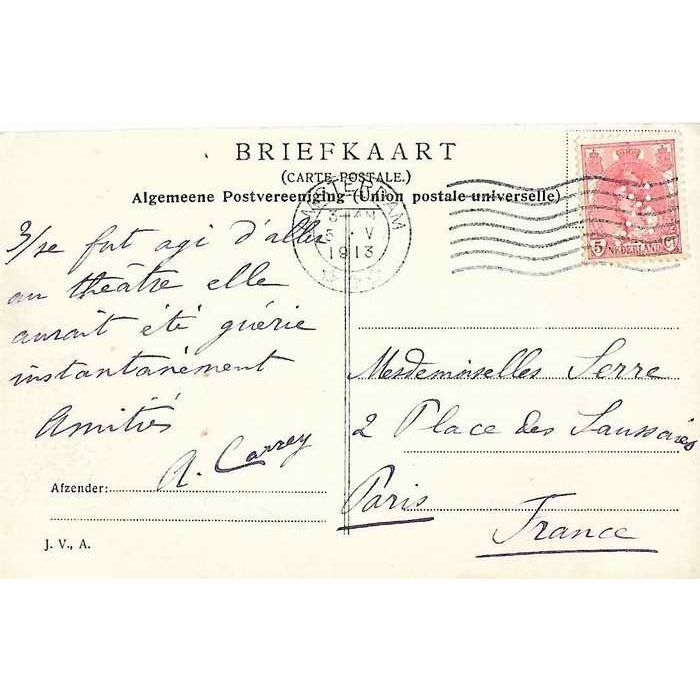 BRIEFKAART
(CARTE POSTALE.)
Algemeene Postvereeniging (Union postale universelle)
AMSTERDAM
1913
5 NEDERLAND CT
3/se fut agi d'aller
au théâtre elle
aurait été guérie
instantanément
Amitiés
A. Carrey
Afzender:
J. V., A.
Mesdemoiselles Serre
2 Place des Saussaies
Paris
France